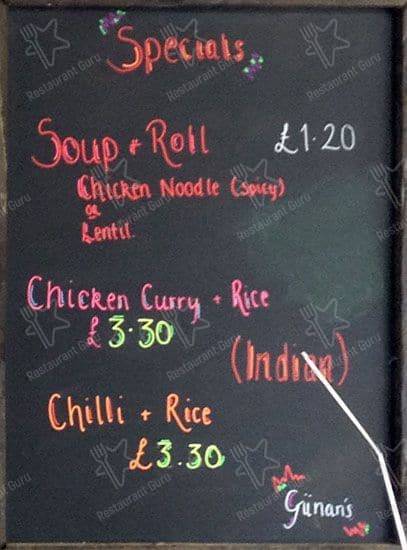 Specials
Soup + Roll £1.20
Chicken Noodle (spicy)
or
Lentil
Chicken Curry + Rice
£3.30
(Indian)
Chilli + Rice
£3.30
Günan's
Restaurant Guru